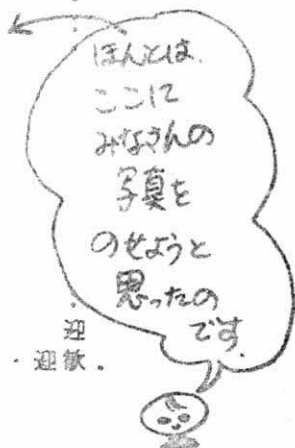 ほんとは、
ここに
みなさんの
写真を
のせようと
思ったの
です。
迎
・迎歓。